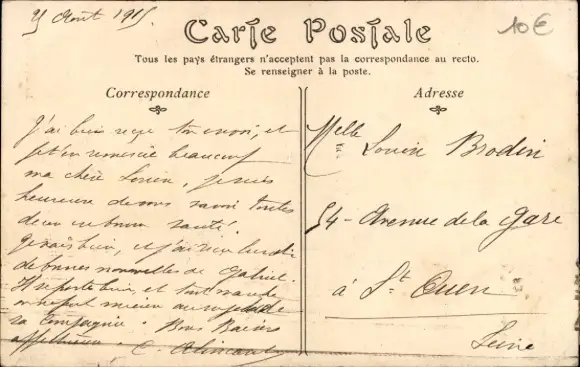 Août 1915
10€
Carte Postale
Tous les pays étrangers n'acceptent pas la correspondance au recto.
Se renseigner à la poste.
Correspondance
J'ai bien reçu ton envoi, et
je t'en remercie beaucoup
ma chère Louise, je suis
heureuse de vous savoir toutes
deux en bonne santé.
Je vais bien, et j'ai reçu
de bonnes nouvelles de Gabriel.
Il se porte bien, et tout
sa Compagnie. Bons Baisers
affectueux. C.
Adresse
Melle Louise Brodin
54 - Avenue de la Gare
à St Ouen
Seine